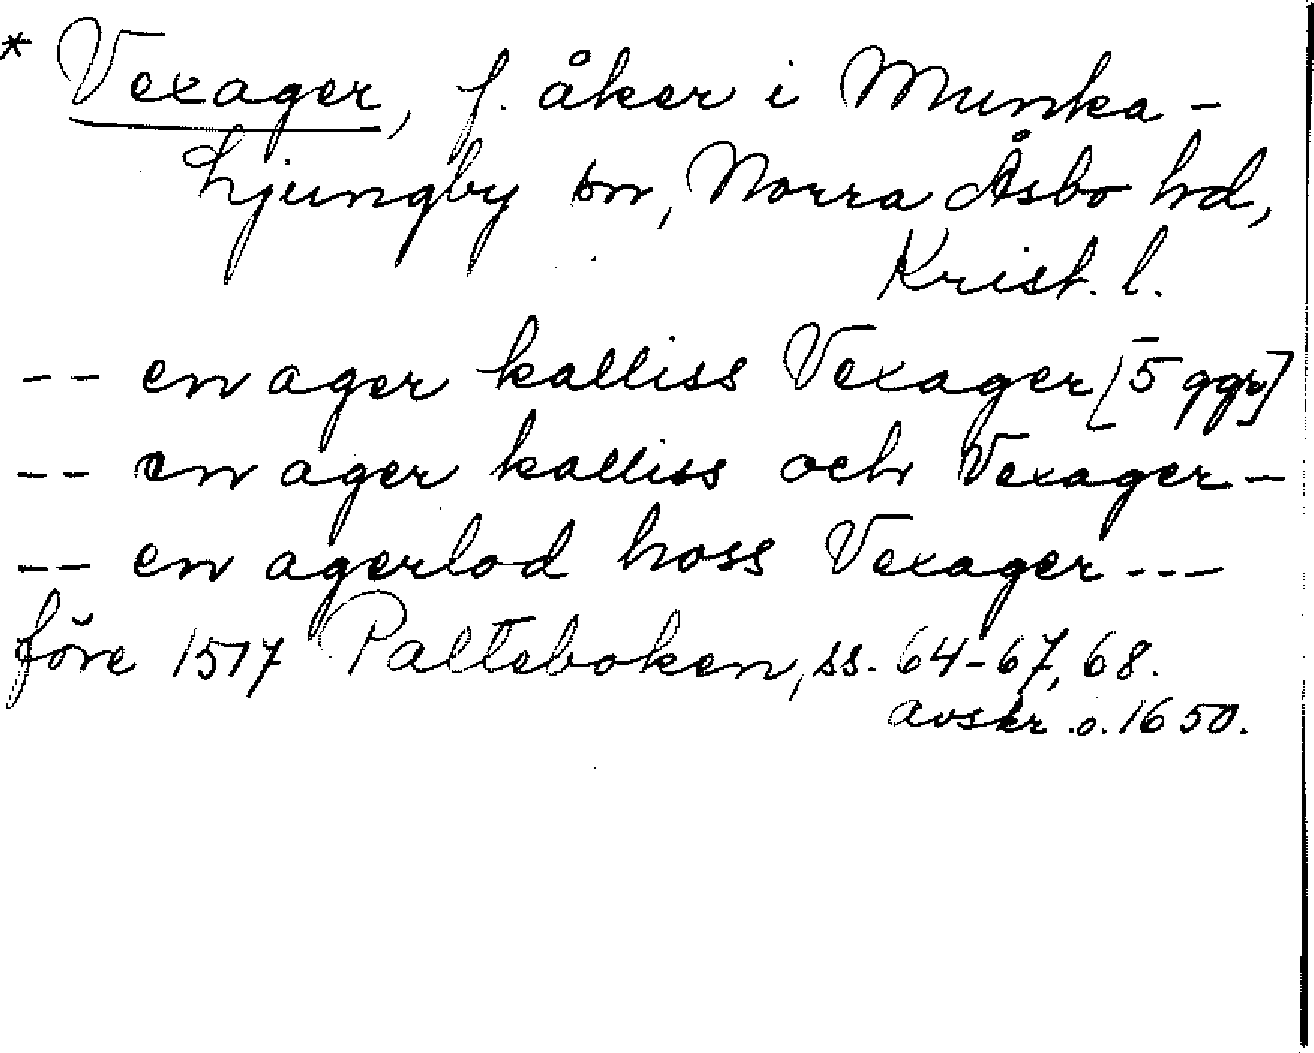 * Vexager, f. åker i Munka-
Ljungby sn, Norra Åsbo hd,
Krist. l.
-- en ager kalliss Vexager [5 ggr]
-- en ager kalliss och Vexager -
-- en agerlod hoss Vexager ---
före 1517 Palteboken, ss. 64-67, 68.
avskr. o. 1650.